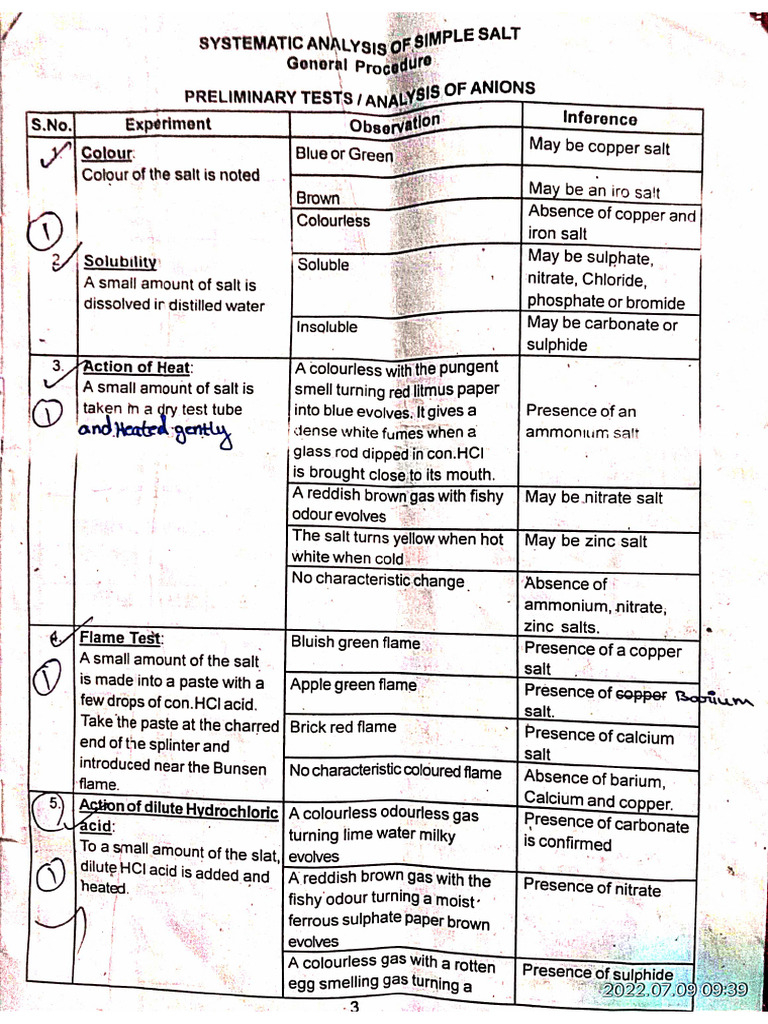 SYSTEMATIC ANALYSIS OF SIMPLE SALT
General Procedure
PRELIMINARY TESTS / ANALYSIS OF ANIONS
S.No. Experiment Observation Inference
1. Colour:
Colour of the salt is noted
Blue or Green
May be copper salt
Brown
May be an iro salt
Colourless
Absence of copper and
iron salt
1
2. Solubility
A small amount of salt is
dissolved in distilled water
Soluble
May be sulphate,
nitrate, Chloride,
phosphate or bromide
Insoluble
May be carbonate or
sulphide
3. Action of Heat:
A small amount of salt is
taken in a dry test tube
and Heated gently
1
A colourless with the pungent
smell turning red litmus paper
into blue evolves. It gives a
dense white fumes when a
glass rod dipped in con.HCl
is brought close to its mouth.
Presence of an
ammonium salt
A reddish brown gas with fishy
odour evolves
May be nitrate salt
The salt turns yellow when hot
white when cold
May be zinc salt
No characteristic change
Absence of
ammonium, nitrate,
zinc salts.
4. Flame Test:
A small amount of the salt
is made into a paste with a
few drops of con.HCl acid.
Take the paste at the charred
end of the splinter and
introduced near the Bunsen
flame.
1
Bluish green flame
Presence of a copper
salt
Apple green flame
Presence of copper Barium
salt.
Brick red flame
Presence of calcium
salt
No characteristic coloured flame
Absence of barium,
Calcium and copper.
5. Action of dilute Hydrochloric
acid:
To a small amount of the slat,
dilute HCl acid is added and
heated.
1
A colourless odourless gas
turning lime water milky
evolves
Presence of carbonate
is confirmed
A reddish brown gas with the
fishy odour turning a moist
ferrous sulphate paper brown
evolves
Presence of nitrate
A colourless gas with a rotten
egg smelling gas turning a
Presence of sulphide
3
2022.07.09 09:39